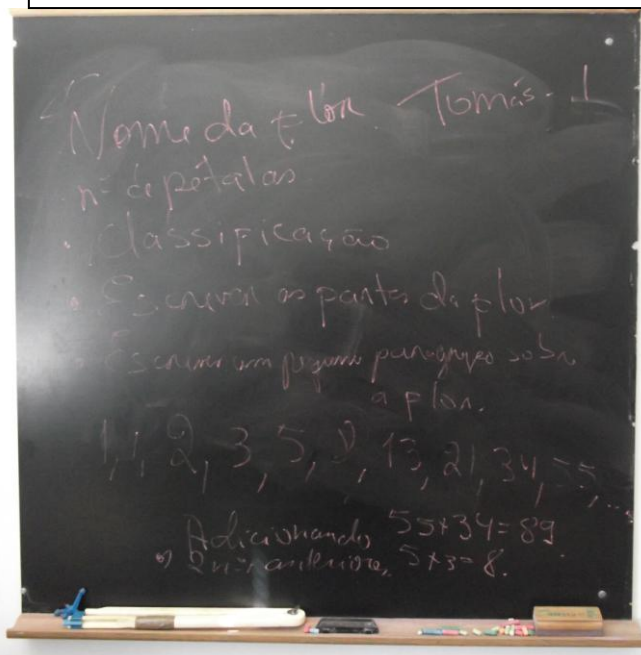 Nome da Flor Tomás - 1
nº de pétalas
• Classificação
• Escrever as partes da flor
• Escrever um pequeno parágrafo sobre
a flor.
1, 1, 2, 3, 5, 8, 13, 21, 34, 55, ...
Adicionando 55+34=89.
2 nºs anteriores, 5+3=8.